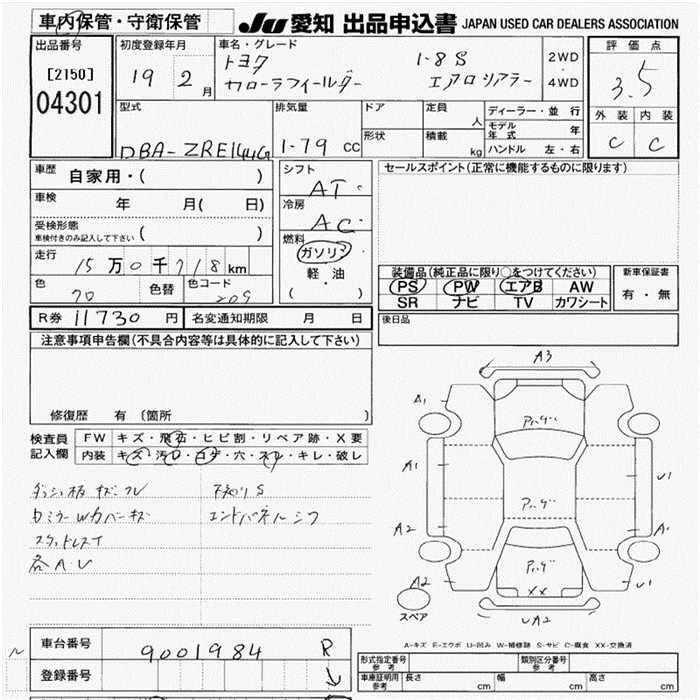 車内保管・守衛保管
JU 愛知 出品申込書 JAPAN USED CAR DEALERS ASSOCIATION
出品番号
[2150]
04301
初度登録年月
19 2 月
車名・グレード
トヨタ 1-8 S
カローラフィールダー エアロツアラー
2WD
4WD
評価点
3.5
外装 内装
C C
型式
DBA-ZRE144G
排気量
1-79 cc
ドア
形状
定員
人
積載
kg
ディーラー・並行
モデル年式 年
ハンドル 左・右
車歴
自家用・( )
車検
年 月( 日)
受検形態
車検付きのみ記入して下さい ( )
走行
15 万 0 千 718 km
色
70
色替
色コード
209
シフト
AT
冷房
AC
燃料
ガソリン
軽・油
( )
セールスポイント(正常に機能するものに限ります)
装備品(純正品に限り○をつけてください)
PS PW エアB AW
SR ナビ TV カワシート
新車保証書
有・無
R券 11730 円 名変通知期限 月 日
後日品
注意事項申告欄(不具合内容等は具体的に記入して下さい)
修復歴 有 (箇所 )
検査員
記入欄
FW キズ・飛石・ヒビ割・リペア跡・X要
内装 キズ・汚れ・コゲ・穴・スレ・キレ・破レ
ダッシュ板キズ
カミラーWカバーキズ
スタットレスT
各A.U
下廻りS
エンドパネルシワ
A3
A1
A1
A2
A2
U1
A1
U1
UA2
XX
スペア
A-キズ E-エクボ U-凹み W-補修跡 S-サビ C-腐食 XX-交換済
車台番号 9001984 R
登録番号
形式指定番号 参考
類別区分番号 参考
車庫証明用 参考 長さ cm 幅 cm 高さ cm